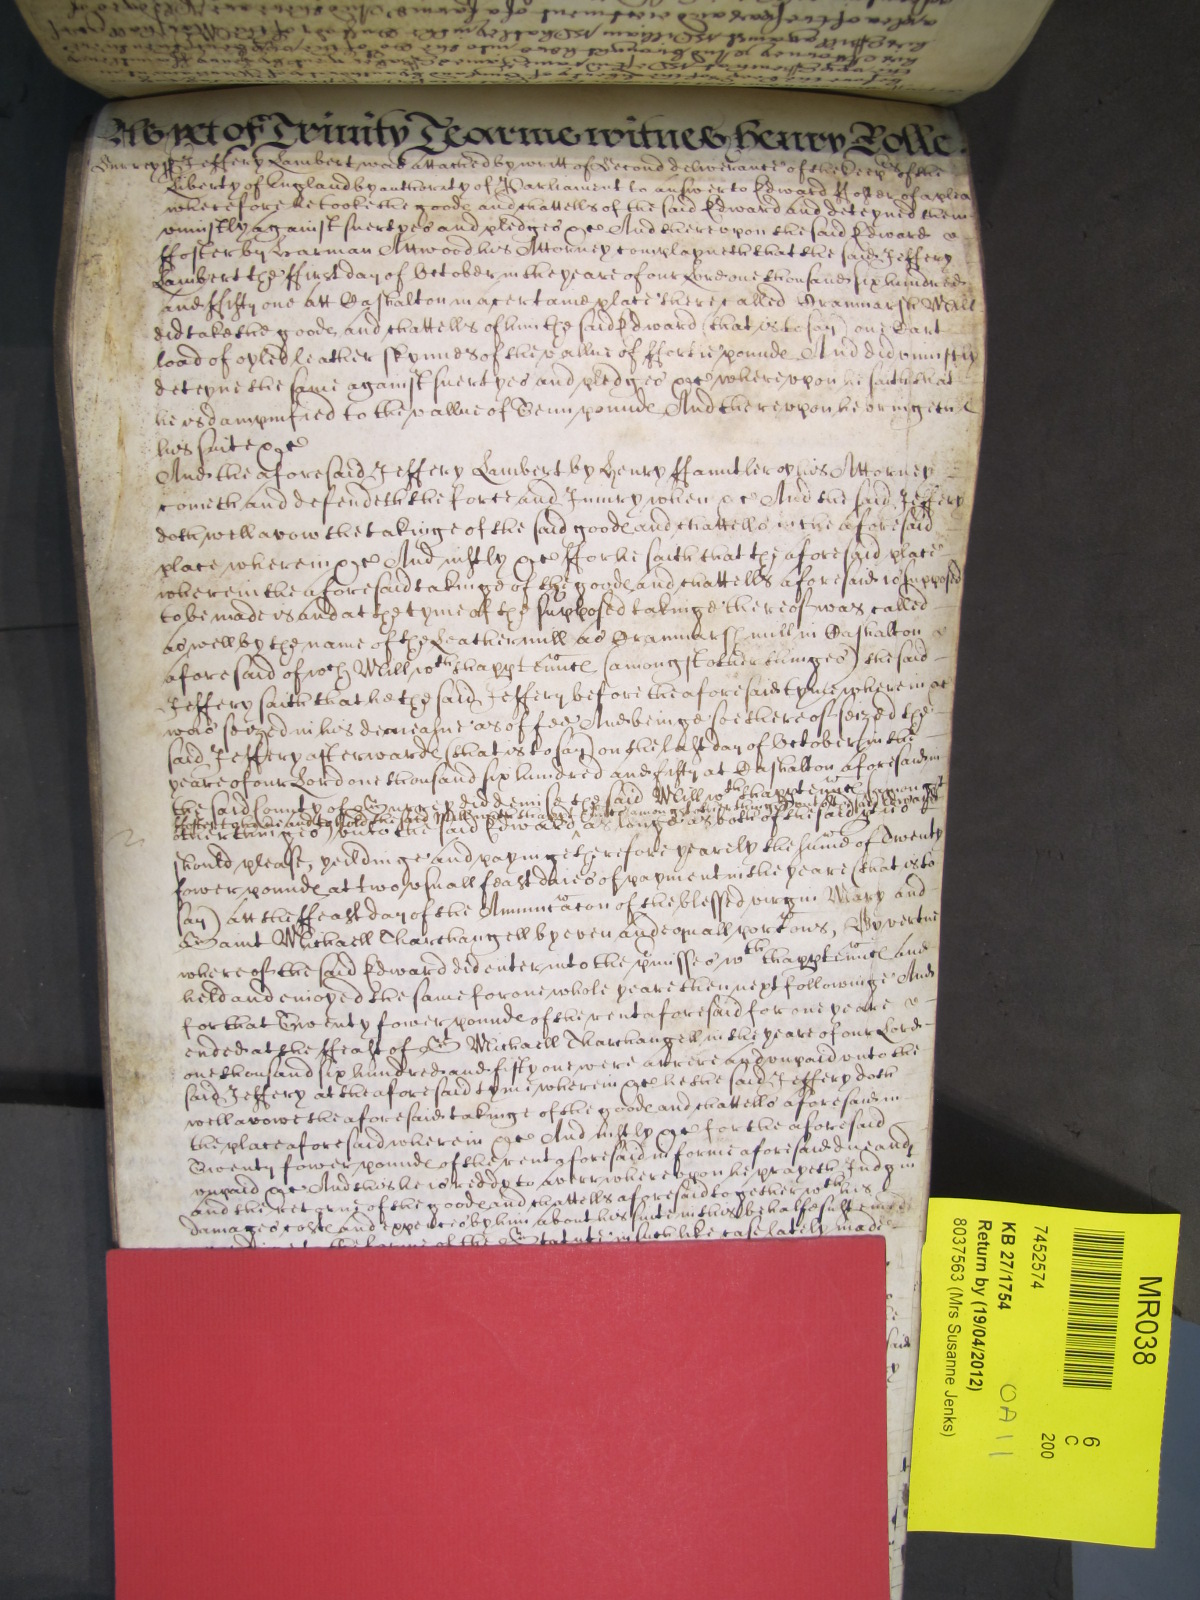 As yet of Trinity Tearme witnes Henry Rolle
Surrey ss Jeffery Lambert was attached by writt of Second deliverance of the Keepers of the
Liberty of England by authority of Parliament to answer to Edward Foster of a plea
wherefore he tooke the goods and chattells of the said Edward and deteyned them
uniustly against suertyes and pledges &c And thereupon the said Edward
ffoster by Harman Attwood his Attorney complayneth that the said Jeffery
Lambert the ffirst day of October in the yeare of our Lord one thousand six hundred
and ffifty one att Cashalton in a certaine place there called Grammarsh Mill
did take the goods and chattells of him the said Edward (that is to say) one Cart
load of oyled leather skynnes of the vallue of ffortie pounds And did uniustly
deteyne the same against suertyes and pledges &c whereupon he saith that
he is dampnified to the vallue of Tenn pounds And thereupon he bringeth
his suite &c
And the aforesaid Jeffery Lambert by Henry ffauntleroy his Attorney
cometh and defendeth the force and Iniury when &c And the said Jeffery
doth well avow the takinge of the said goods and chattells in the aforesaid
place wherein &c And iustly &c ffor he saith that the aforesaid place
wherein the aforesaid takinge of the goods and chattells aforesaid is supposed
to be made is and at the tyme of the supposed takinge thereof was called
as well by the name of the Leather mill as Grammarsh mill in Cashalton
aforesaid of wch Mill wth thapptennce (amongst other thinges) the said
Jeffery saith that he the said Jeffery before the aforesaid tyme wherein &c
was seized in his demeasne as of fee And beinge soe thereof seized the
said Jeffery afterwards (that is to say) on the last day of October in the
yeare of our Lord one thousand six hundred and fifty at Cashalton aforesaid in
the said County of Surrey did demise the said Mill wth thapptennce (among
to have and to hold the said Mill with thapptennce amongst other thinges unto the said Edward
other thinges) unto the said Edward as longe as both of the said parties
should please, yeildinge and payinge therefore yearely the summe of Twenty
fower pounds at two usuall feast daies of payment in the yeare (that is to
say) att the ffeast day of the Annunciacon of the blessed virgin Mary and
Saint Michaell Tharchangell by even and equall porcons, By vertue
whereof the said Edward did enter into the pmisses wth thapptennce and
held and enioyed the same for one whole yeare then next followinge And
for that Twenty fower pounds of the rent aforesaid for one yeare
ended at the ffeast of St Michaell Tharchangell in the yeare of our Lord
one thousand six hundred and fifty one were arrere and unpaid unto the
said Jeffery at the aforesaid tyme wherein &c he the said Jeffery doth
well avowe the aforesaid takinge of the goods and chattells aforesaid in
the place aforesaid wherein &c And iustly &c for the aforesaid
Twenty fower pounds of the rent aforesaid in forme aforesaid due and
unpaid &c And this he is ready to averr whereupon he prayeth Iudgmt
and the retorne of the goods and chattells aforesaid together wth his
damages costs and expences by him about his suite in this behalfe susteined
according to the forme of the Statute in such like case lately made
said
MR038
6
C
200
7452574
KB 27/1754
OA 11
Return by (19/04/2012)
8037563 (Mrs Susanne Jenks)